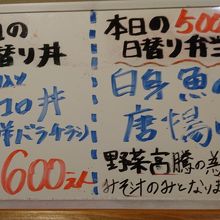 の
替り丼
コロ丼
洋バラチラシ
600えん
本日の500
日替り弁当
白身魚の
唐揚
野菜高騰の為
みそ汁のみとなりま